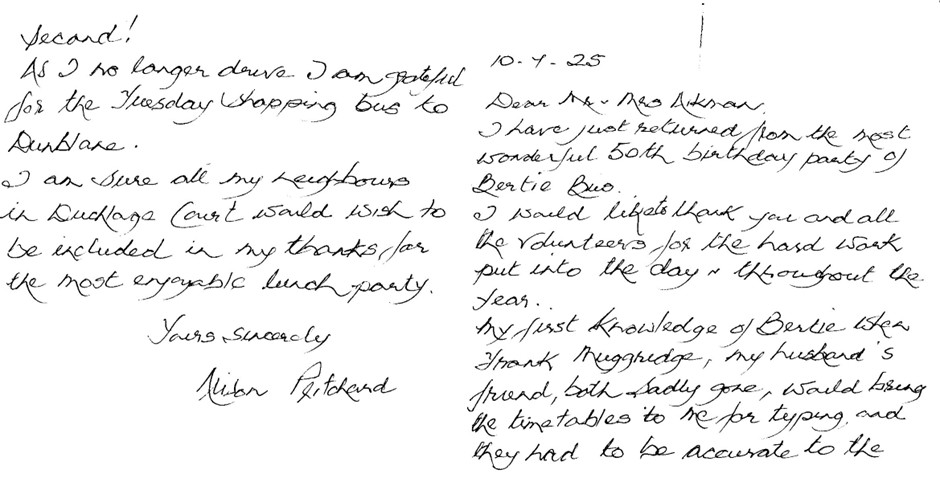 10-4-25
Dear Mr ~ Mrs Aikman,
I have just returned from the most
wonderful 50th birthday party of
Bertie Bus.
I would like to thank you and all
the volunteers for the hard work
put into the day ~ throughout the
year.
My first knowledge of Bertie when
Frank Muggridge, my husband's
friend, both sadly gone, would bring
the timetables to me for typing and
they had to be accurate to the
second!
As I no longer drive I am grateful
for the Tuesday shopping bus to
Dunblane.
I am sure all my neighbours
in Court would wish to
be included in my thanks for
the most enjoyable lunch party.
Yours sincerely
Alison Pritchard